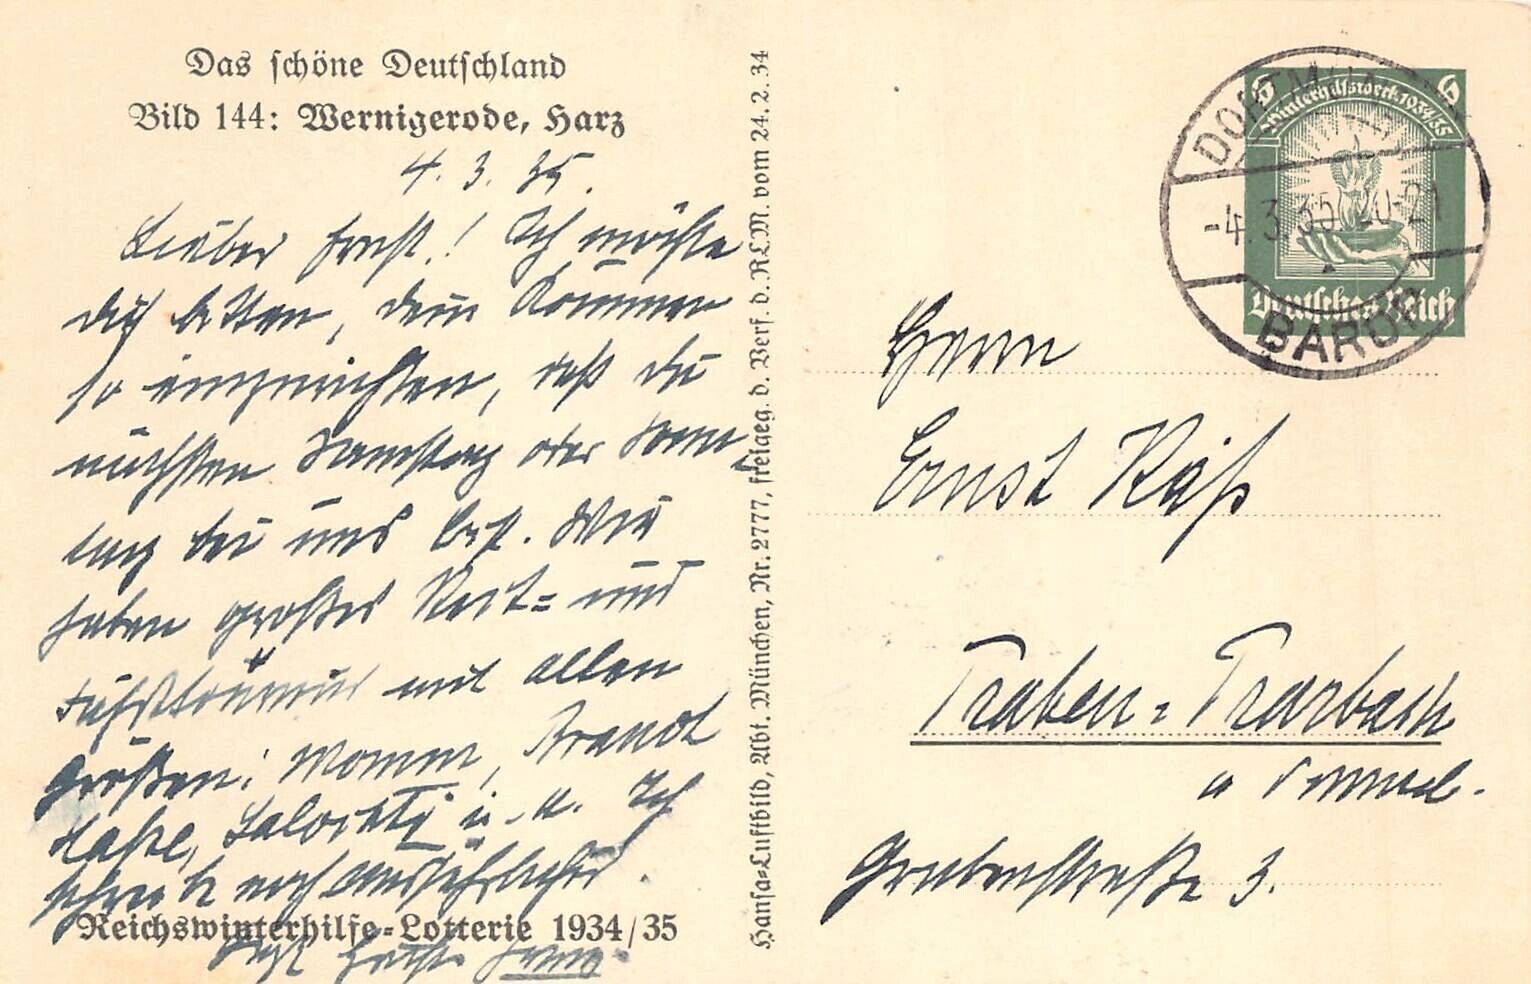 Das schöne Deutschland
Bild 144: Wernigerode, Harz
4. 3. 35.
Lieber Ernst! Ich möchte
dich bitten, dein Kommen
so einzurichten, daß du
nächsten Samstag oder Sonn-
tag bei uns bist. Wir
haben großes Reit- und
mit allen
Größen: Momm, Brandt
Hasse, u. a. Ich
schreibe noch ausführlicher.
Reichswinterhilfe-Lotterie 1934/35
Hansa-Luftbild, Abt. München, Nr. 2777, freigeg. d. Verf. d. RLM. vom 24. 2. 34
6 6
Winterhilfswerk 1934/35
Deutsches Reich
DORTMUND
-4.3.35 20-21
BAROP
Herrn
Ernst Käß
Traben-Trarbach
a
Grabenstraße 3.